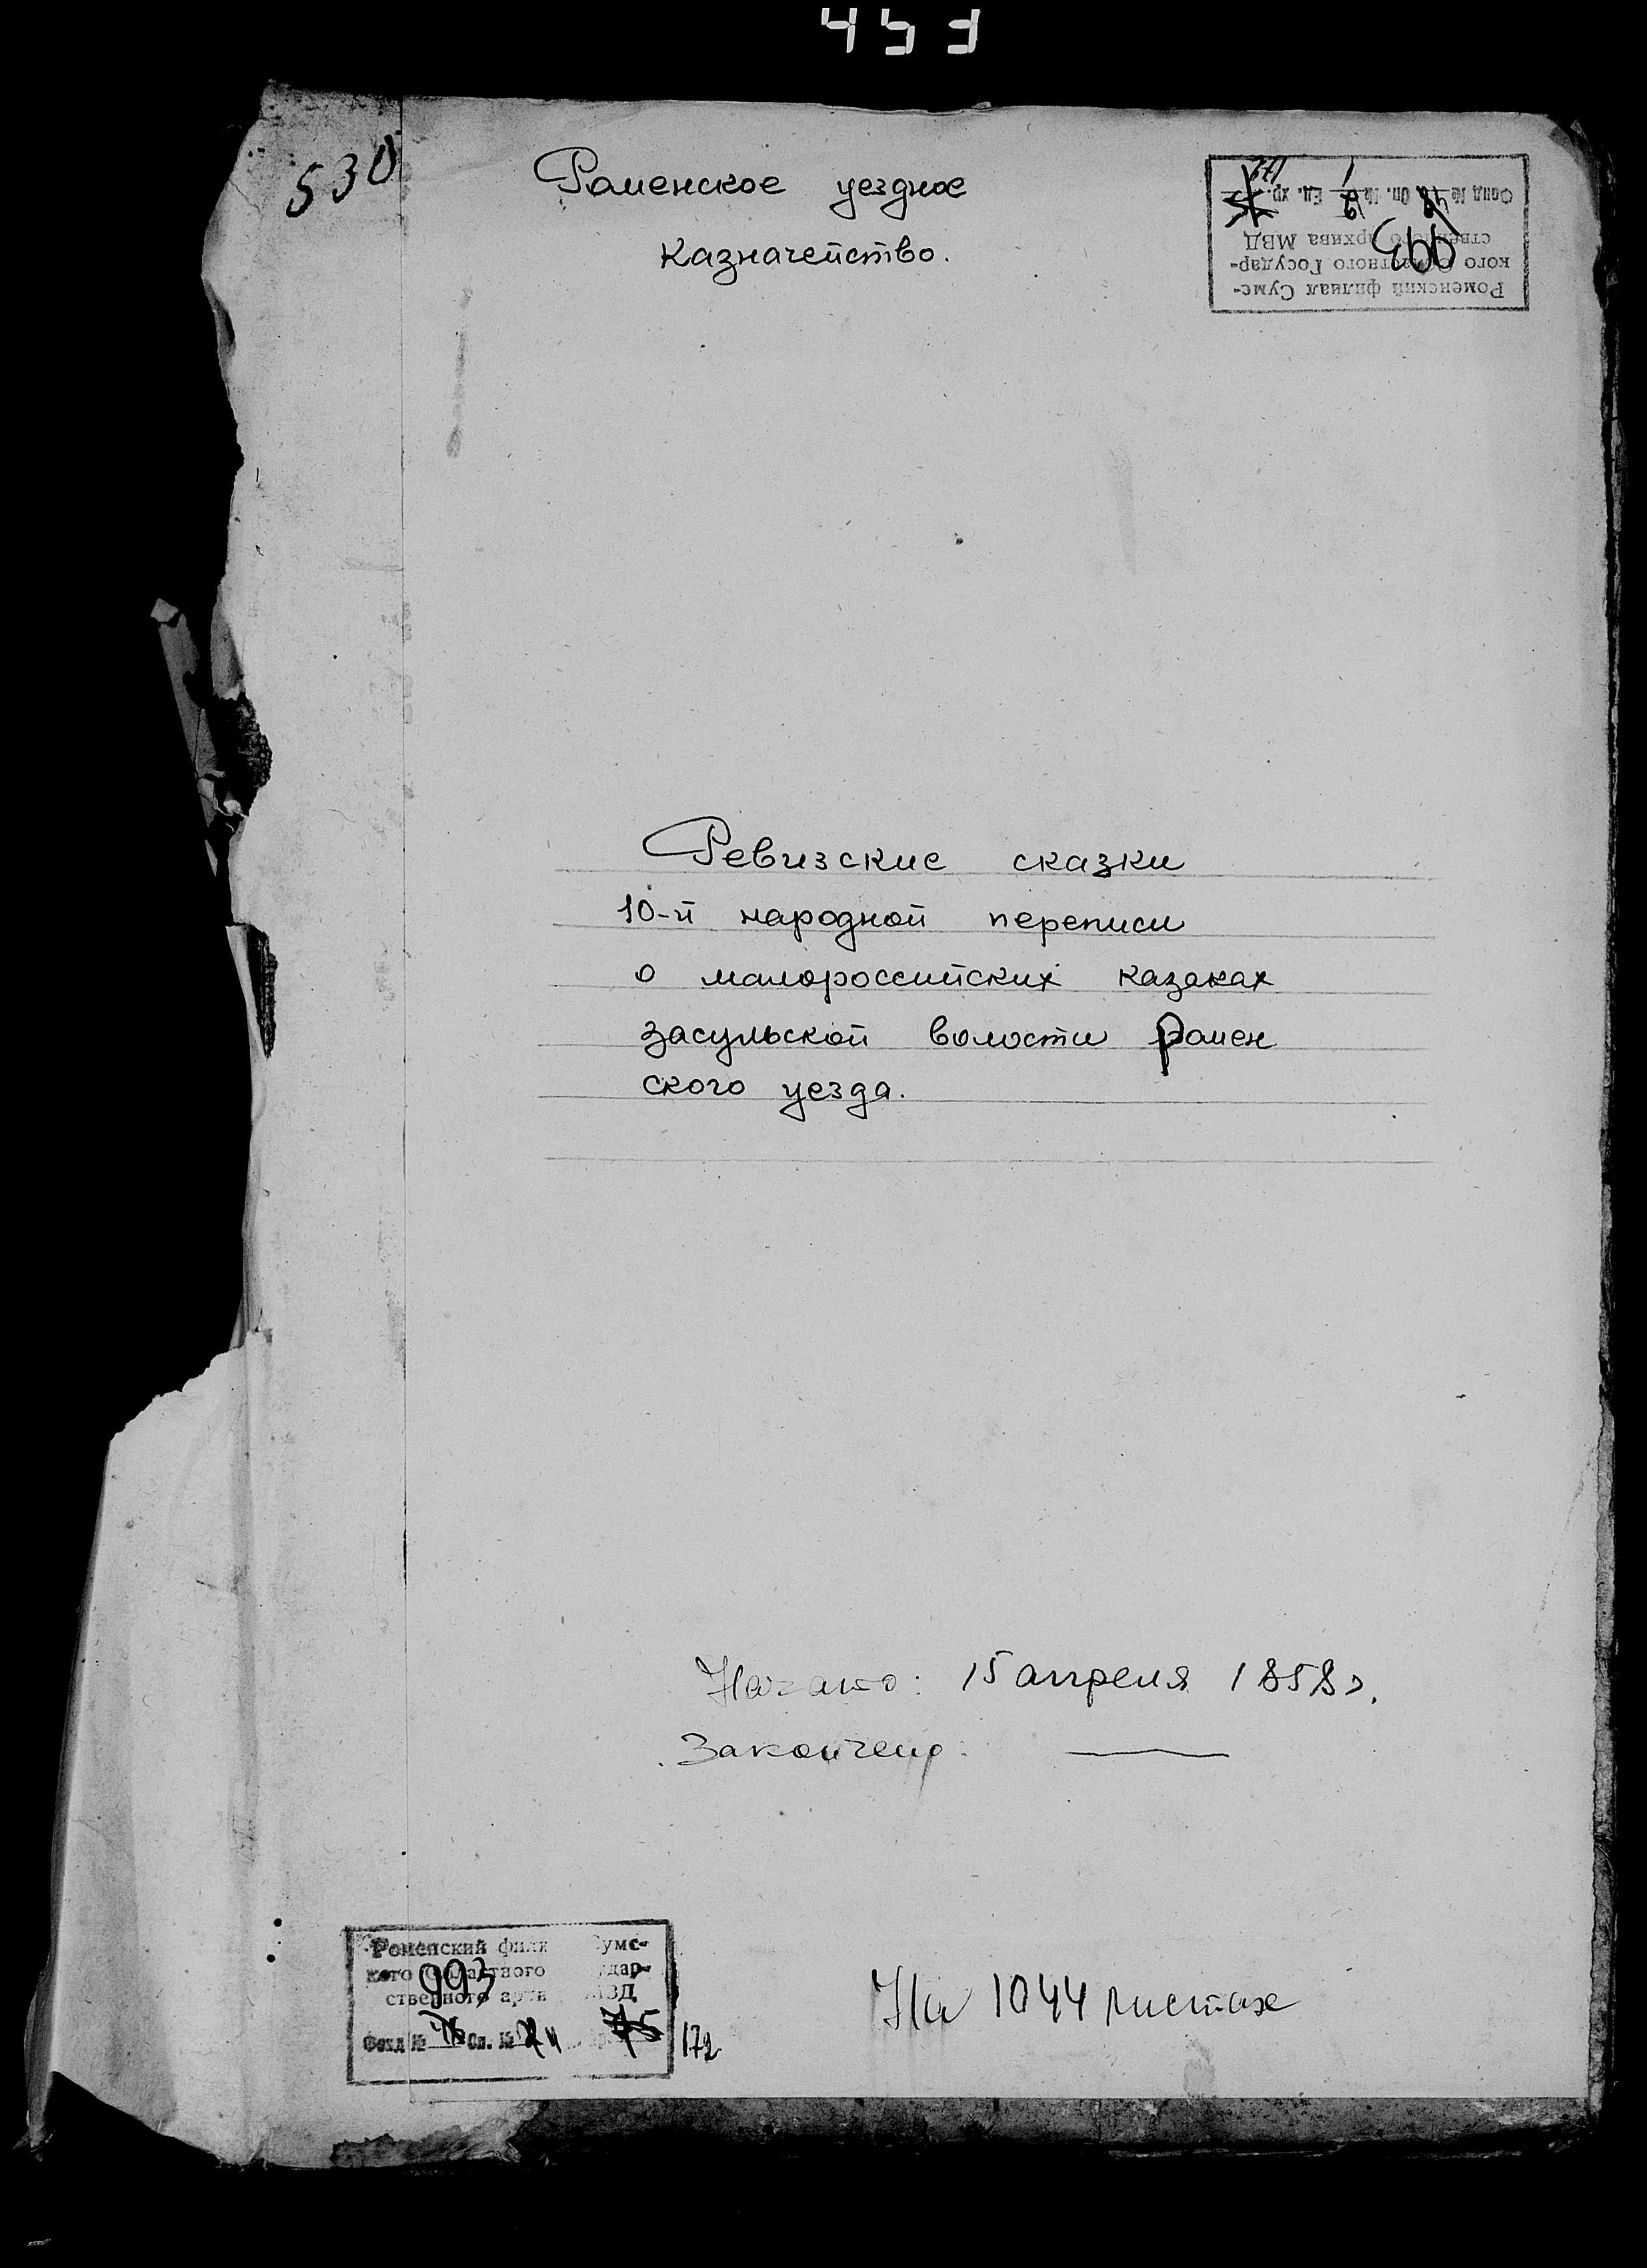 530
Роменское уездное
казначейство.
Роменский филиал Сумс-
кого Областного Государ-
ственного архива МВД
Фонд № Оп. № Ед. хр.
993
Ревизские сказки
10-й народной переписи
о малороссийских казаках
засульской волости Ромен
ского уезда.
Начало: 15 апреля 1858 г.
Закончено: —
Роменский фили Сумс-
кого Областного дар-
ственного архи МВД
993
Фонд № Оп. № 75 172
На 1044 листах